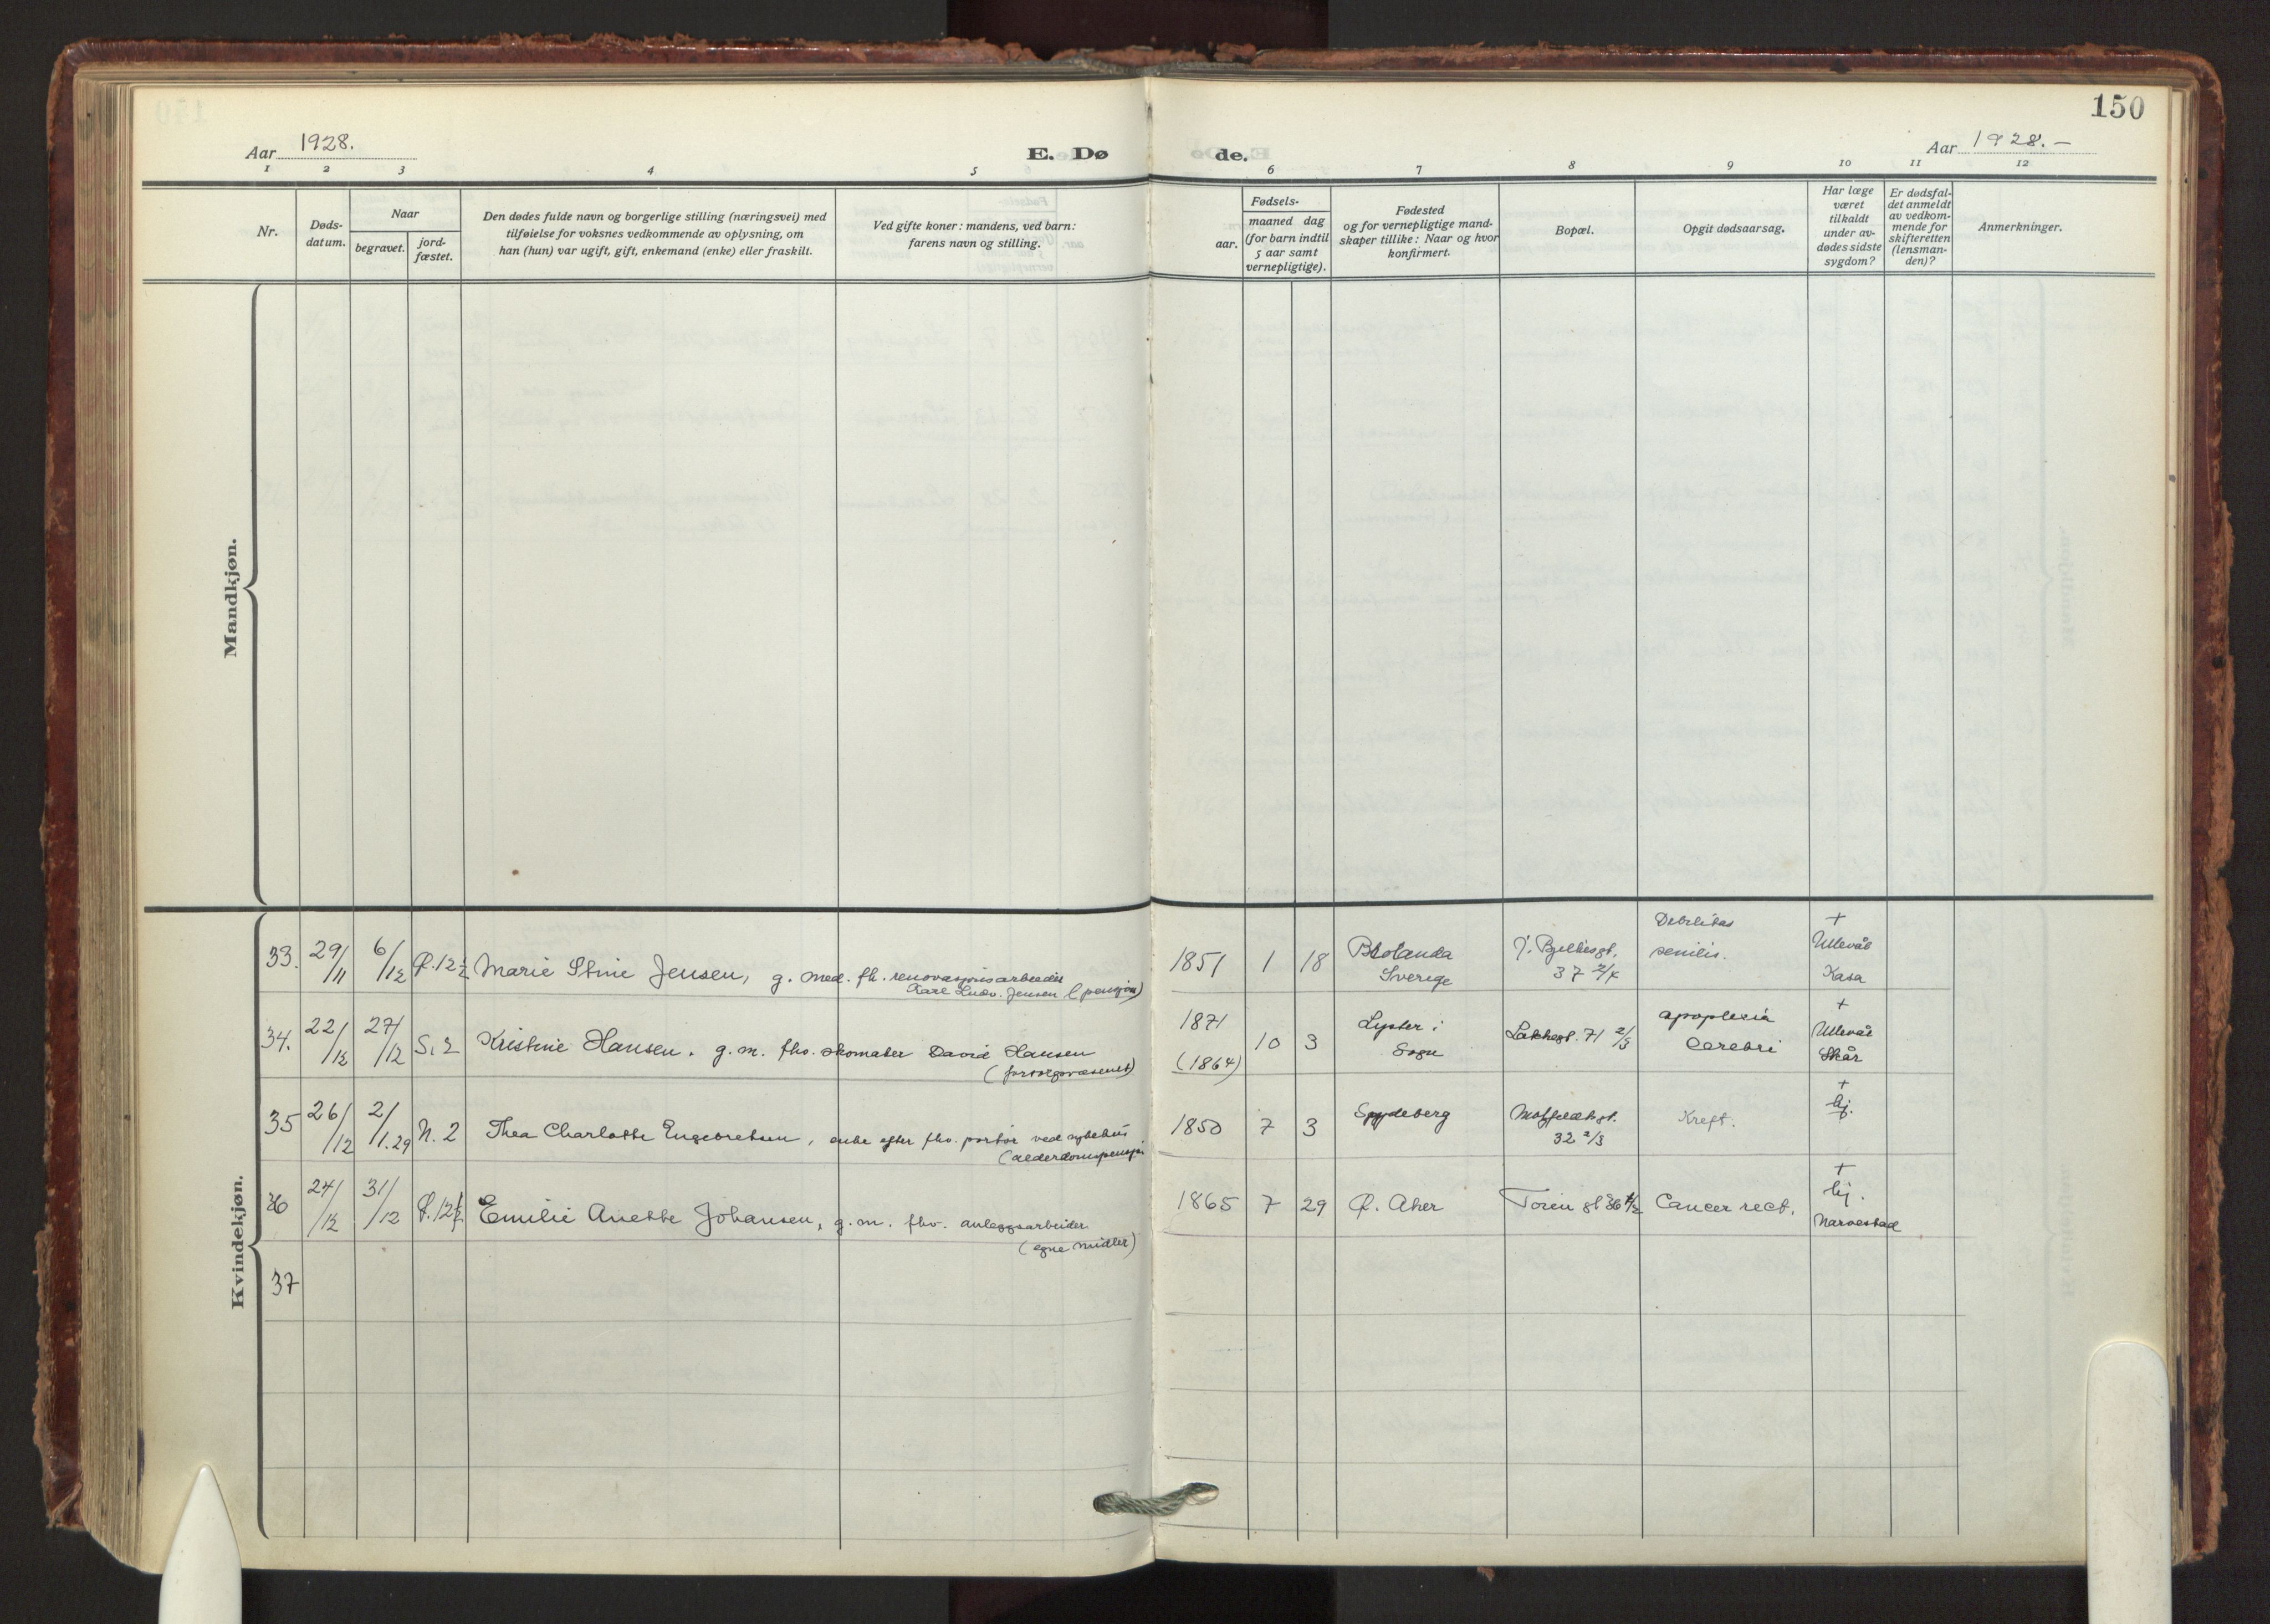 150
Aar 1928.
E. Dø
de.
Aar 1928.-
1 2 3 4 5 6 7 8 9 10 11 12
Nr.
Døds-
datum.
Naar
begravet.
jord-
fæstet.
Den dødes fulde navn og borgerlige stilling (næringsvei) med
tilføielse for voksnes vedkommende av oplysning, om
han (hun) var ugift, gift, enkemand (enke) eller fraskilt.
Ved gifte koner: mandens, ved barn:
farens navn og stilling.
Fødsels-
aar.
maaned dag
(for barn indtil
5 aar samt
vernepligtige).
Fødested
og for vernepligtige mand-
skaper tillike: Naar og hvor
konfirmert.
Bopæl.
Opgit dødsaarsag.
Har læge
været
tilkaldt
under av-
dødes sidste
sygdom?
Er dødsfal-
det anmeldt
av vedkom-
mende for
skifteretten
(lensman-
den)?
Anmerkninger.
Mandkjøn.
Kvindekjøn.
33. 29/11 6/12 12½ Marie Stine Jensen, g. med. fh. renovasjonsarbeider
Karl Ludv. Jensen (pensjon)
1851 1 18
Sverige
37 2/4
Debilitas
senilis.
+
Ullevål
Kasa
34. 22/12 27/12 S. 2 Kristine Hansen. g. m. fhv. skomaker David Hansen
(forsorgsvæsenet)
1871
(1864)
10 3
Lyster i
Sogn
Lakkegt. 71 2/3
apoplexia
cerebri
+
Ullevål
Skår
35 26/12 2/1.29 N. 2 Thea Charlotte Engebretsen, enke efter fhv. portør ved sykehus
(alderdomspensjon
1850 7 3
Spydeberg
Motzfeldtsgt.
32 2/3
Kreft.
+
hj.
36 24/12 31/12 12½ Emilie Anette Johansen, g. m. fhv. anleggsarbeider
(egne midler)
1865 7 29
Ø. Aker
gt 36 4/2
Cancer rect.
+
hj.
Narvestad
37